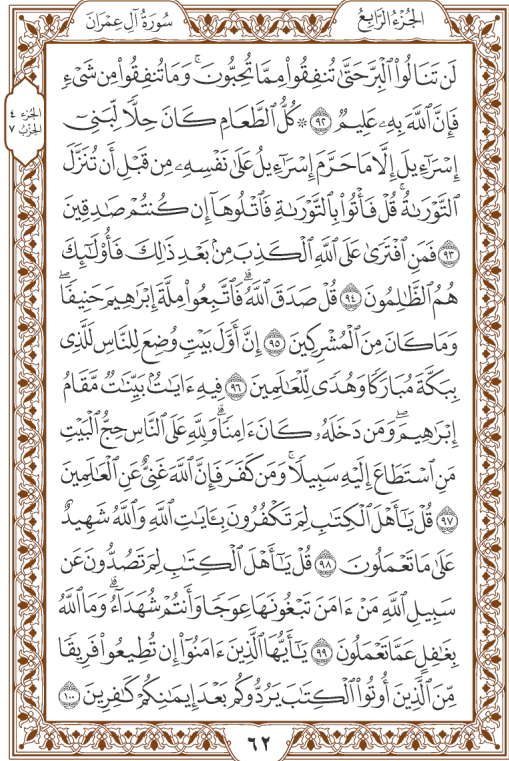 الجُزْءُ الرَّابِعُ
سُورَةُ آلِ عِمْرَانَ
الجزء ٤
الحزب ٧
لَن تَنَالُوا۟ ٱلْبِرَّ حَتَّىٰ تُنفِقُوا۟ مِمَّا تُحِبُّونَ ۚ وَمَا تُنفِقُوا۟ مِن شَىْءٍ
فَإِنَّ ٱللَّهَ بِهِۦ عَلِيمٌ ۝٩٢ ۞ كُلُّ ٱلطَّعَامِ كَانَ حِلًّا لِّبَنِىٓ
إِسْرَٰٓءِيلَ إِلَّا مَا حَرَّمَ إِسْرَٰٓءِيلُ عَلَىٰ نَفْسِهِۦ مِن قَبْلِ أَن تُنَزَّلَ
ٱلتَّوْرَىٰةُ ۗ قُلْ فَأْتُوا۟ بِٱلتَّوْرَىٰةِ فَٱتْلُوهَآ إِن كُنتُمْ صَٰدِقِينَ
۝٩٣ فَمَنِ ٱفْتَرَىٰ عَلَى ٱللَّهِ ٱلْكَذِبَ مِنۢ بَعْدِ ذَٰلِكَ فَأُو۟لَٰٓئِكَ
هُمُ ٱلظَّٰلِمُونَ ۝٩٤ قُلْ صَدَقَ ٱللَّهُ ۗ فَٱتَّبِعُوا۟ مِلَّةَ إِبْرَٰهِيمَ حَنِيفًا ۖ
وَمَا كَانَ مِنَ ٱلْمُشْرِكِينَ ۝٩٥ إِنَّ أَوَّلَ بَيْتٍ وُضِعَ لِلنَّاسِ لَلَّذِى
بِبَكَّةَ مُبَارَكًا وَهُدًى لِّلْعَٰلَمِينَ ۝٩٦ فِيهِ ءَايَٰتٌۢ بَيِّنَٰتٌ مَّقَامُ
إِبْرَٰهِيمَ ۖ وَمَن دَخَلَهُۥ كَانَ ءَامِنًا ۗ وَلِلَّهِ عَلَى ٱلنَّاسِ حِجُّ ٱلْبَيْتِ
مَنِ ٱسْتَطَاعَ إِلَيْهِ سَبِيلًا ۚ وَمَن كَفَرَ فَإِنَّ ٱللَّهَ غَنِىٌّ عَنِ ٱلْعَٰلَمِينَ
۝٩٧ قُلْ يَٰٓأَهْلَ ٱلْكِتَٰبِ لِمَ تَكْفُرُونَ بِـَٔايَٰتِ ٱللَّهِ وَٱللَّهُ شَهِيدٌ
عَلَىٰ مَا تَعْمَلُونَ ۝٩٨ قُلْ يَٰٓأَهْلَ ٱلْكِتَٰبِ لِمَ تَصُدُّونَ عَن
سَبِيلِ ٱللَّهِ مَنْ ءَامَنَ تَبْغُونَهَا عِوَجًا وَأَنتُمْ شُهَدَآءُ ۗ وَمَا ٱللَّهُ
بِغَٰفِلٍ عَمَّا تَعْمَلُونَ ۝٩٩ يَٰٓأَيُّهَا ٱلَّذِينَ ءَامَنُوٓا۟ إِن تُطِيعُوا۟ فَرِيقًا
مِّنَ ٱلَّذِينَ أُوتُوا۟ ٱلْكِتَٰبَ يَرُدُّوكُم بَعْدَ إِيمَٰنِكُمْ كَٰفِرِينَ ۝١٠٠
٦٢